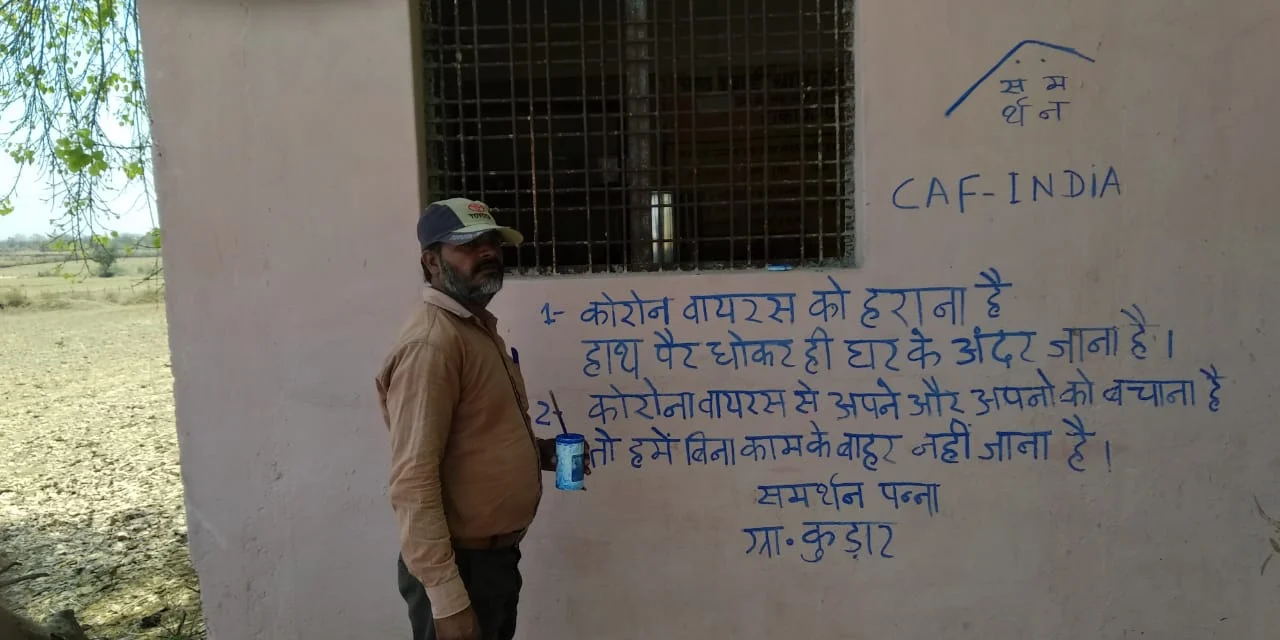 स म
र्थ न
CAF-INDiA
TOYOTA
1- कोरोन वायरस को हराना है
हाथ पैर धोकर ही घर के अंदर जाना है।
2- कोरोना वायरस से अपने और अपनो को बचाना है
तो हमें बिना काम के बाहर नहीं जाना है।
समर्थन पन्ना
ग्रा. कुड़ार